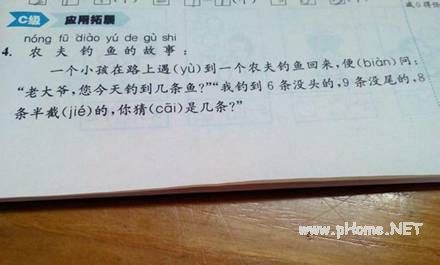 C级 应用拓展
nóng fū diào yú de gù shi
4. 农夫钓鱼的故事：
一个小孩在路上遇(yù)到一个农夫钓鱼回来,便(biàn)问：
“老大爷,您今天钓到几条鱼?”“我钓到 6 条没头的,9 条没尾的,8
条半截(jié)的,你猜(cāi)是几条?”
www.pHome.NET